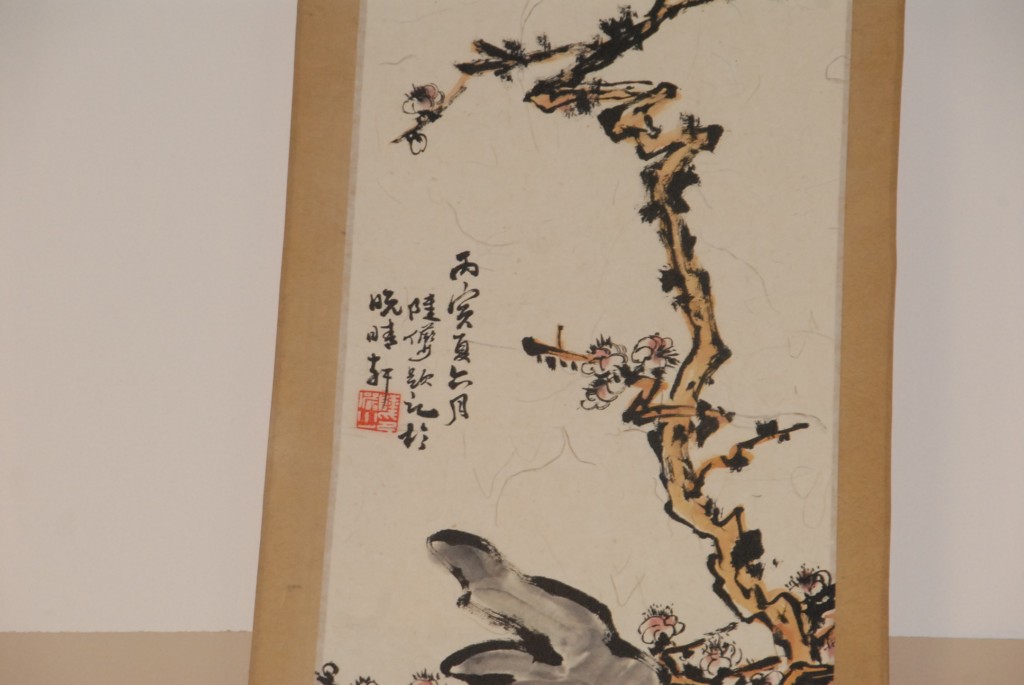 丙寅夏六月
陸儼題記於
晚晴軒